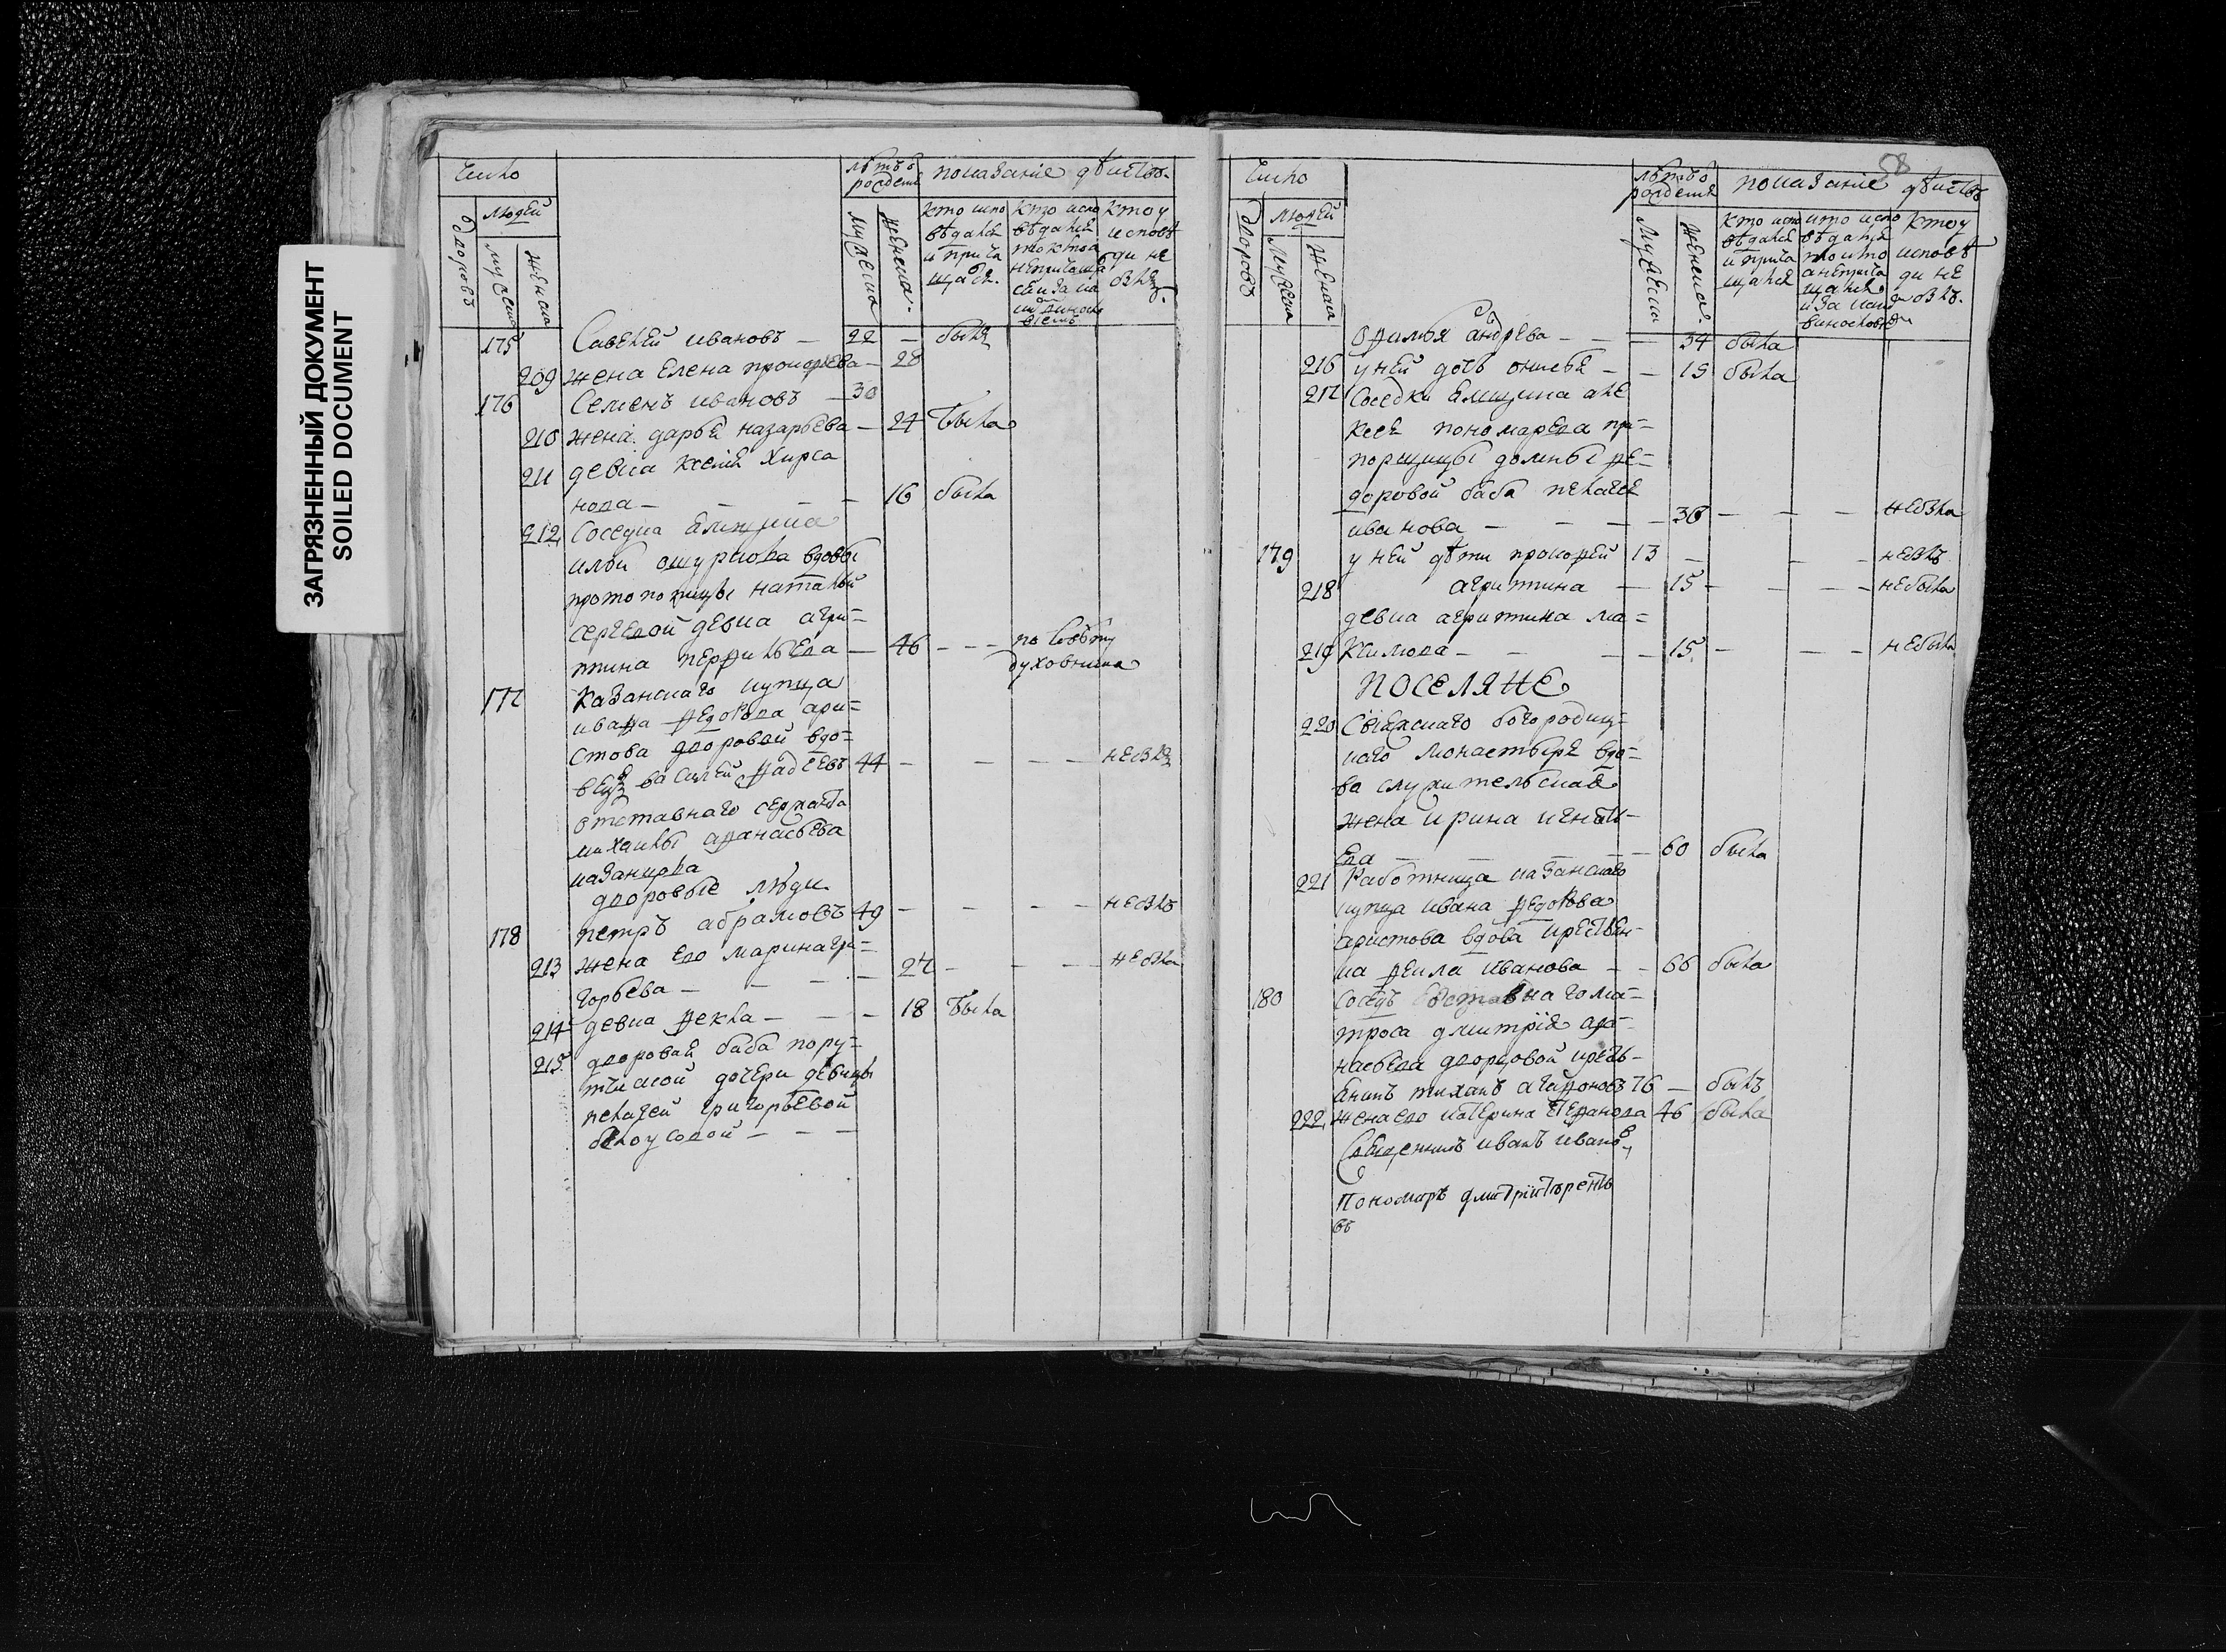 ЗАГРЯЗНЕННЫЙ ДОКУМЕНТ
SOILED DOCUMENT
Число
людей
дворовъ
мужеска
женска
лѣтъ ѿ рожденїя
мужеска
женска
показанїе дѣйствъ
кто исповѣдался и причащался
кто исповѣдался токмо а не причащался и за каким виновством
кто у исповѣди не былъ
175 Савелей ивановъ — 22 — былъ
209 жена Елена прокофьева — 28
176 Семенъ ивановъ — 30
210 жена дарья назарьева — 27 была
211 девка ксенїя хирса
нова — — — — 16 была
212 Соседка ямщика
ильи ошуркова вдовы
протопопицы натальи
сергевой девка агри=
пина перфильева — 46 - - - по совѣту
духовника
177 Казанскаго купца
ивана федорова ари=
стова дворовой вдо=
вецъ василей фадеевъ 44 — — — — небылъ
отставнаго сержанта
михаилы афанасьева
казанцова
дворовые люди
178 петръ абрамовъ 49 — — — — небылъ
213 жена его марина гри=
горьева — — — — 27 — — — небыла
214 девка фекла — — — 18 была
215 дворовая баба пору=
тчиской дочери девицы
пелагеи григорьевой
белоусовой — — —
58
Число
людей
дворовъ
мужеска
женска
лѣтъ ѿ рожденїя
мужеска
женска
показанїе дѣйствъ
кто исповѣдался и причащался
кто исповѣдался токмо а не причащался и за каким виновством
кто у исповѣди не былъ
андрева — — — 34 была
216 у ней дочь — — 15 была
217 Соседки ямщика але
ксея пономарева пра=
порщицы домны фе=
доровой баба пелагея
иванова — — — — 36 — — — небыла
179 у ней дѣти прокофей 13 — — — небылъ
218 агрипина — 15 - — — небыла
девка агрипина ма=
219 ксимова — — — — 15 - — — небыла
ПОСЕЛЯНЕ
220 Свияжскаго богородиц=
каго монастыря вдо=
ва служительская
жена ирина игнать=
ева — — — — — 60 была
221 Работница казанскаго
купца ивана федорова
аристова вдова крестьян=
ка фекла иванова — — 66 была
180 Соседъ отставнаго ма=
троса дмитрїя афа=
насьева дворцовой кресть=
янинъ тиханъ агафоновъ 76 — былъ
222 жена его катерина стефанова 46 была
Священникъ иванъ ивановъ
Пономарь дмитрїй терентье
въ